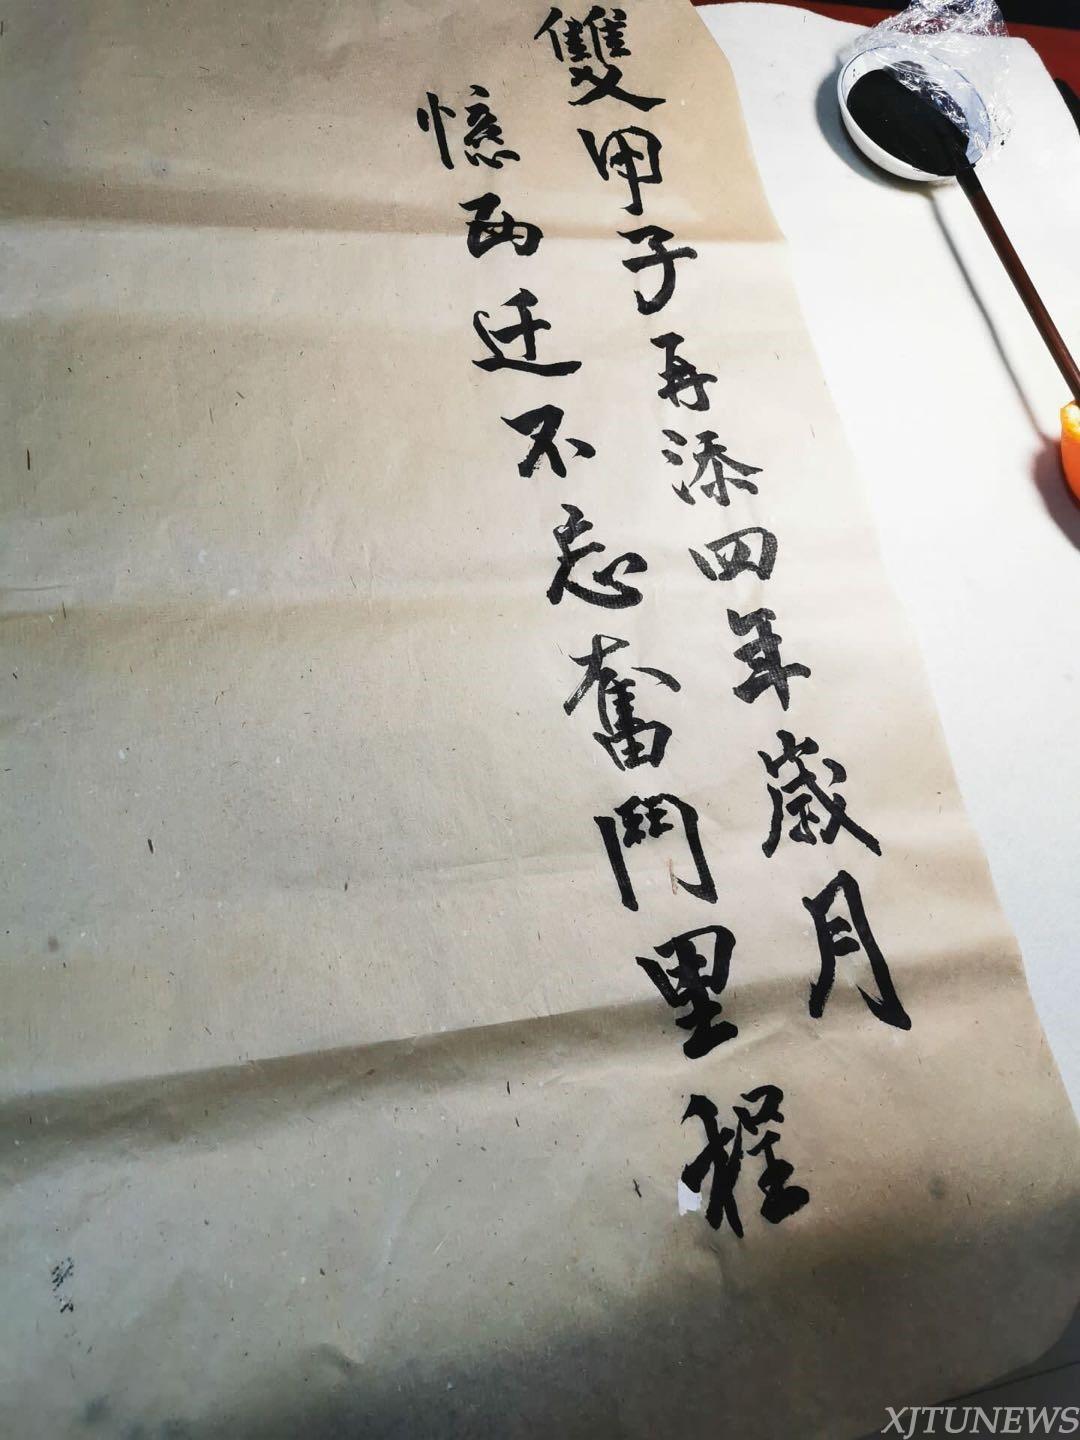 雙甲子再添四年歲月
憶西迁不忘奮鬥里程
XJTUNEWS